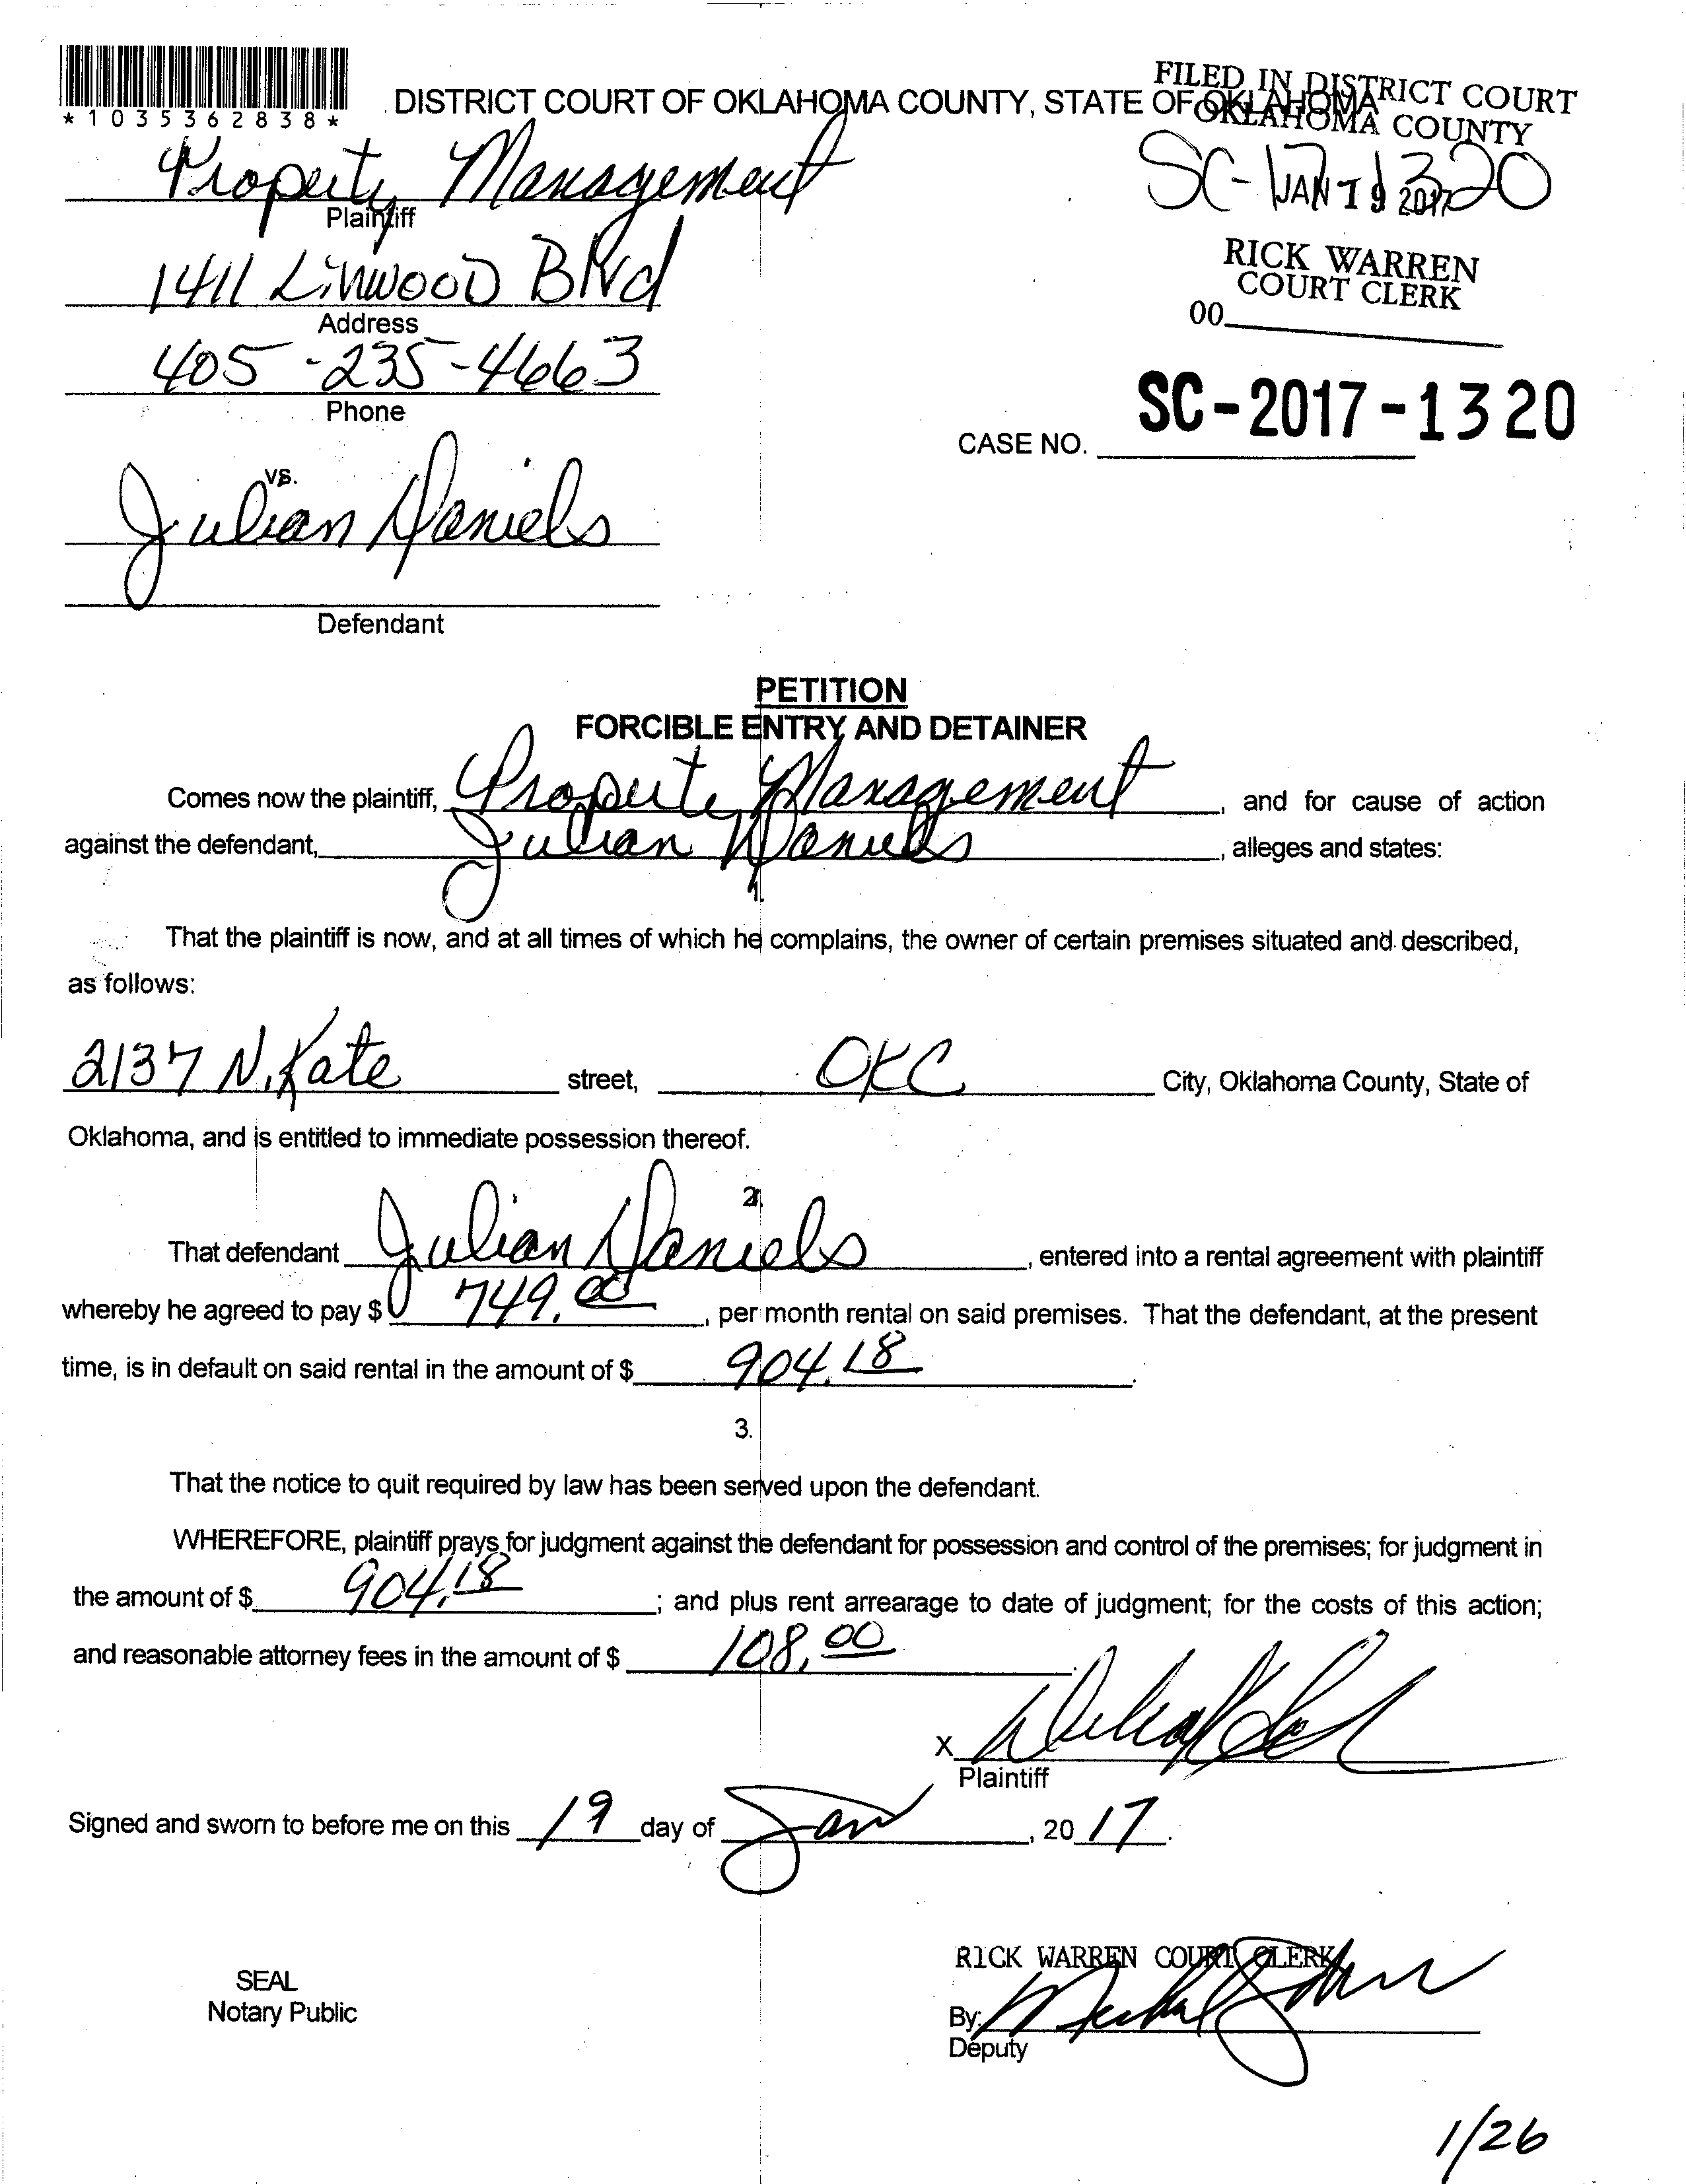 *1035362838*
DISTRICT COURT OF OKLAHOMA COUNTY, STATE OF OKLAHOMA
FILED IN DISTRICT COURT
OKLAHOMA COUNTY
SC-17-1320
JAN 19 2017
RICK WARREN
COURT CLERK
00
Property Management
Plaintiff
1411 Linwood Blvd
Address
405-235-4663
Phone
CASE NO. SC-2017-1320
vs.
Julian Daniels
Defendant
PETITION
FORCIBLE ENTRY AND DETAINER
Comes now the plaintiff, Property Management, and for cause of action
against the defendant, Julian Daniels, alleges and states:
1.
That the plaintiff is now, and at all times of which he complains, the owner of certain premises situated and described,
as follows:
2137 N. Kate street, OKC City, Oklahoma County, State of
Oklahoma, and is entitled to immediate possession thereof.
2.
That defendant Julian Daniels, entered into a rental agreement with plaintiff
whereby he agreed to pay $ 749.00, per month rental on said premises. That the defendant, at the present
time, is in default on said rental in the amount of $ 904.18.
3.
That the notice to quit required by law has been served upon the defendant.
WHEREFORE, plaintiff prays for judgment against the defendant for possession and control of the premises; for judgment in
the amount of $ 904.18; and plus rent arrearage to date of judgment; for the costs of this action;
and reasonable attorney fees in the amount of $ 108.00.
X
Plaintiff
Signed and sworn to before me on this 19 day of Jan, 2017.
RICK WARREN COURT CLERK
SEAL
Notary Public
By:
Deputy
1/26